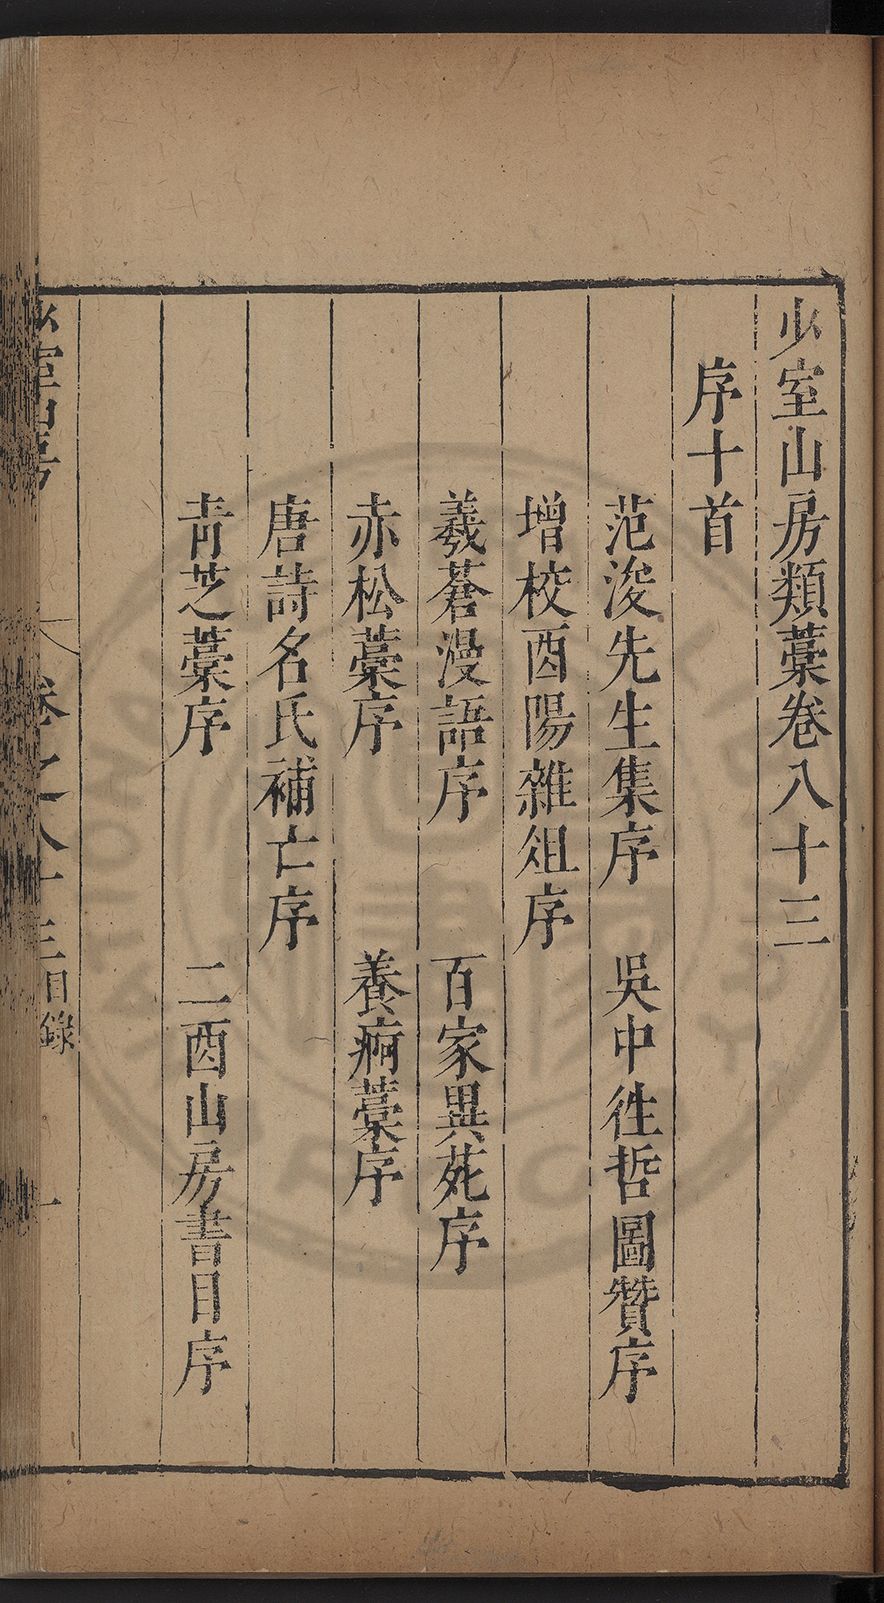 少室山房類藁卷八十三
序十首
范浚先生集序　吳中徃哲圖贊序
增校酉陽雜俎序
羲蒼漫語序　百家異苑序
赤松藁序　養痾藁序
唐詩名氏補亡序
青芝藁序　二酉山房書目序
卷之八十三目錄　一